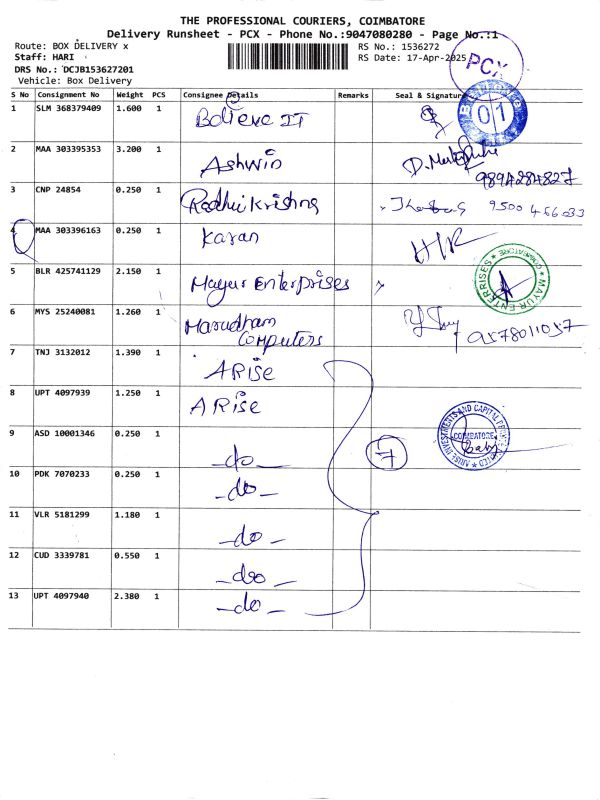 THE PROFESSIONAL COURIERS, COIMBATORE
Delivery Runsheet - PCX - Phone No.:9047080280 - Page No.:1
Route: BOX DELIVERY x
RS No.: 1536272
Staff: HARI
RS Date: 17-Apr-2025
DRS No.: DCJB153627201
Vehicle: Box Delivery
PCX
01
S No Consignment No Weight PCS Consignee Details Remarks Seal & Signature
1 SLM 368379409 1.600 1 Believe IT
2 MAA 303395353 3.200 1 Ashwin
9894284827
3 CNP 24854 0.250 1 Radhukrishna 9500456033
4 MAA 303396163 0.250 1 Karan
5 BLR 425741129 2.150 1 Mayur Enterprises
MAYUR ENTERPRISES * COIMBATORE *
6 MYS 25240081 1.260 1 Marudham
Computers
9578011057
7 TNJ 3132012 1.390 1 ARise
8 UPT 4097939 1.250 1 ARise
9 ASD 10001346 0.250 1 -do- 7
ARISE INVESTMENTS AND CAPITAL PRIVATE LIMITED
COIMBATORE
10 PDK 7070233 0.250 1 -do-
11 VLR 5181299 1.180 1 -do-
12 CUD 3339781 0.550 1 -do-
13 UPT 4097940 2.380 1 -do-